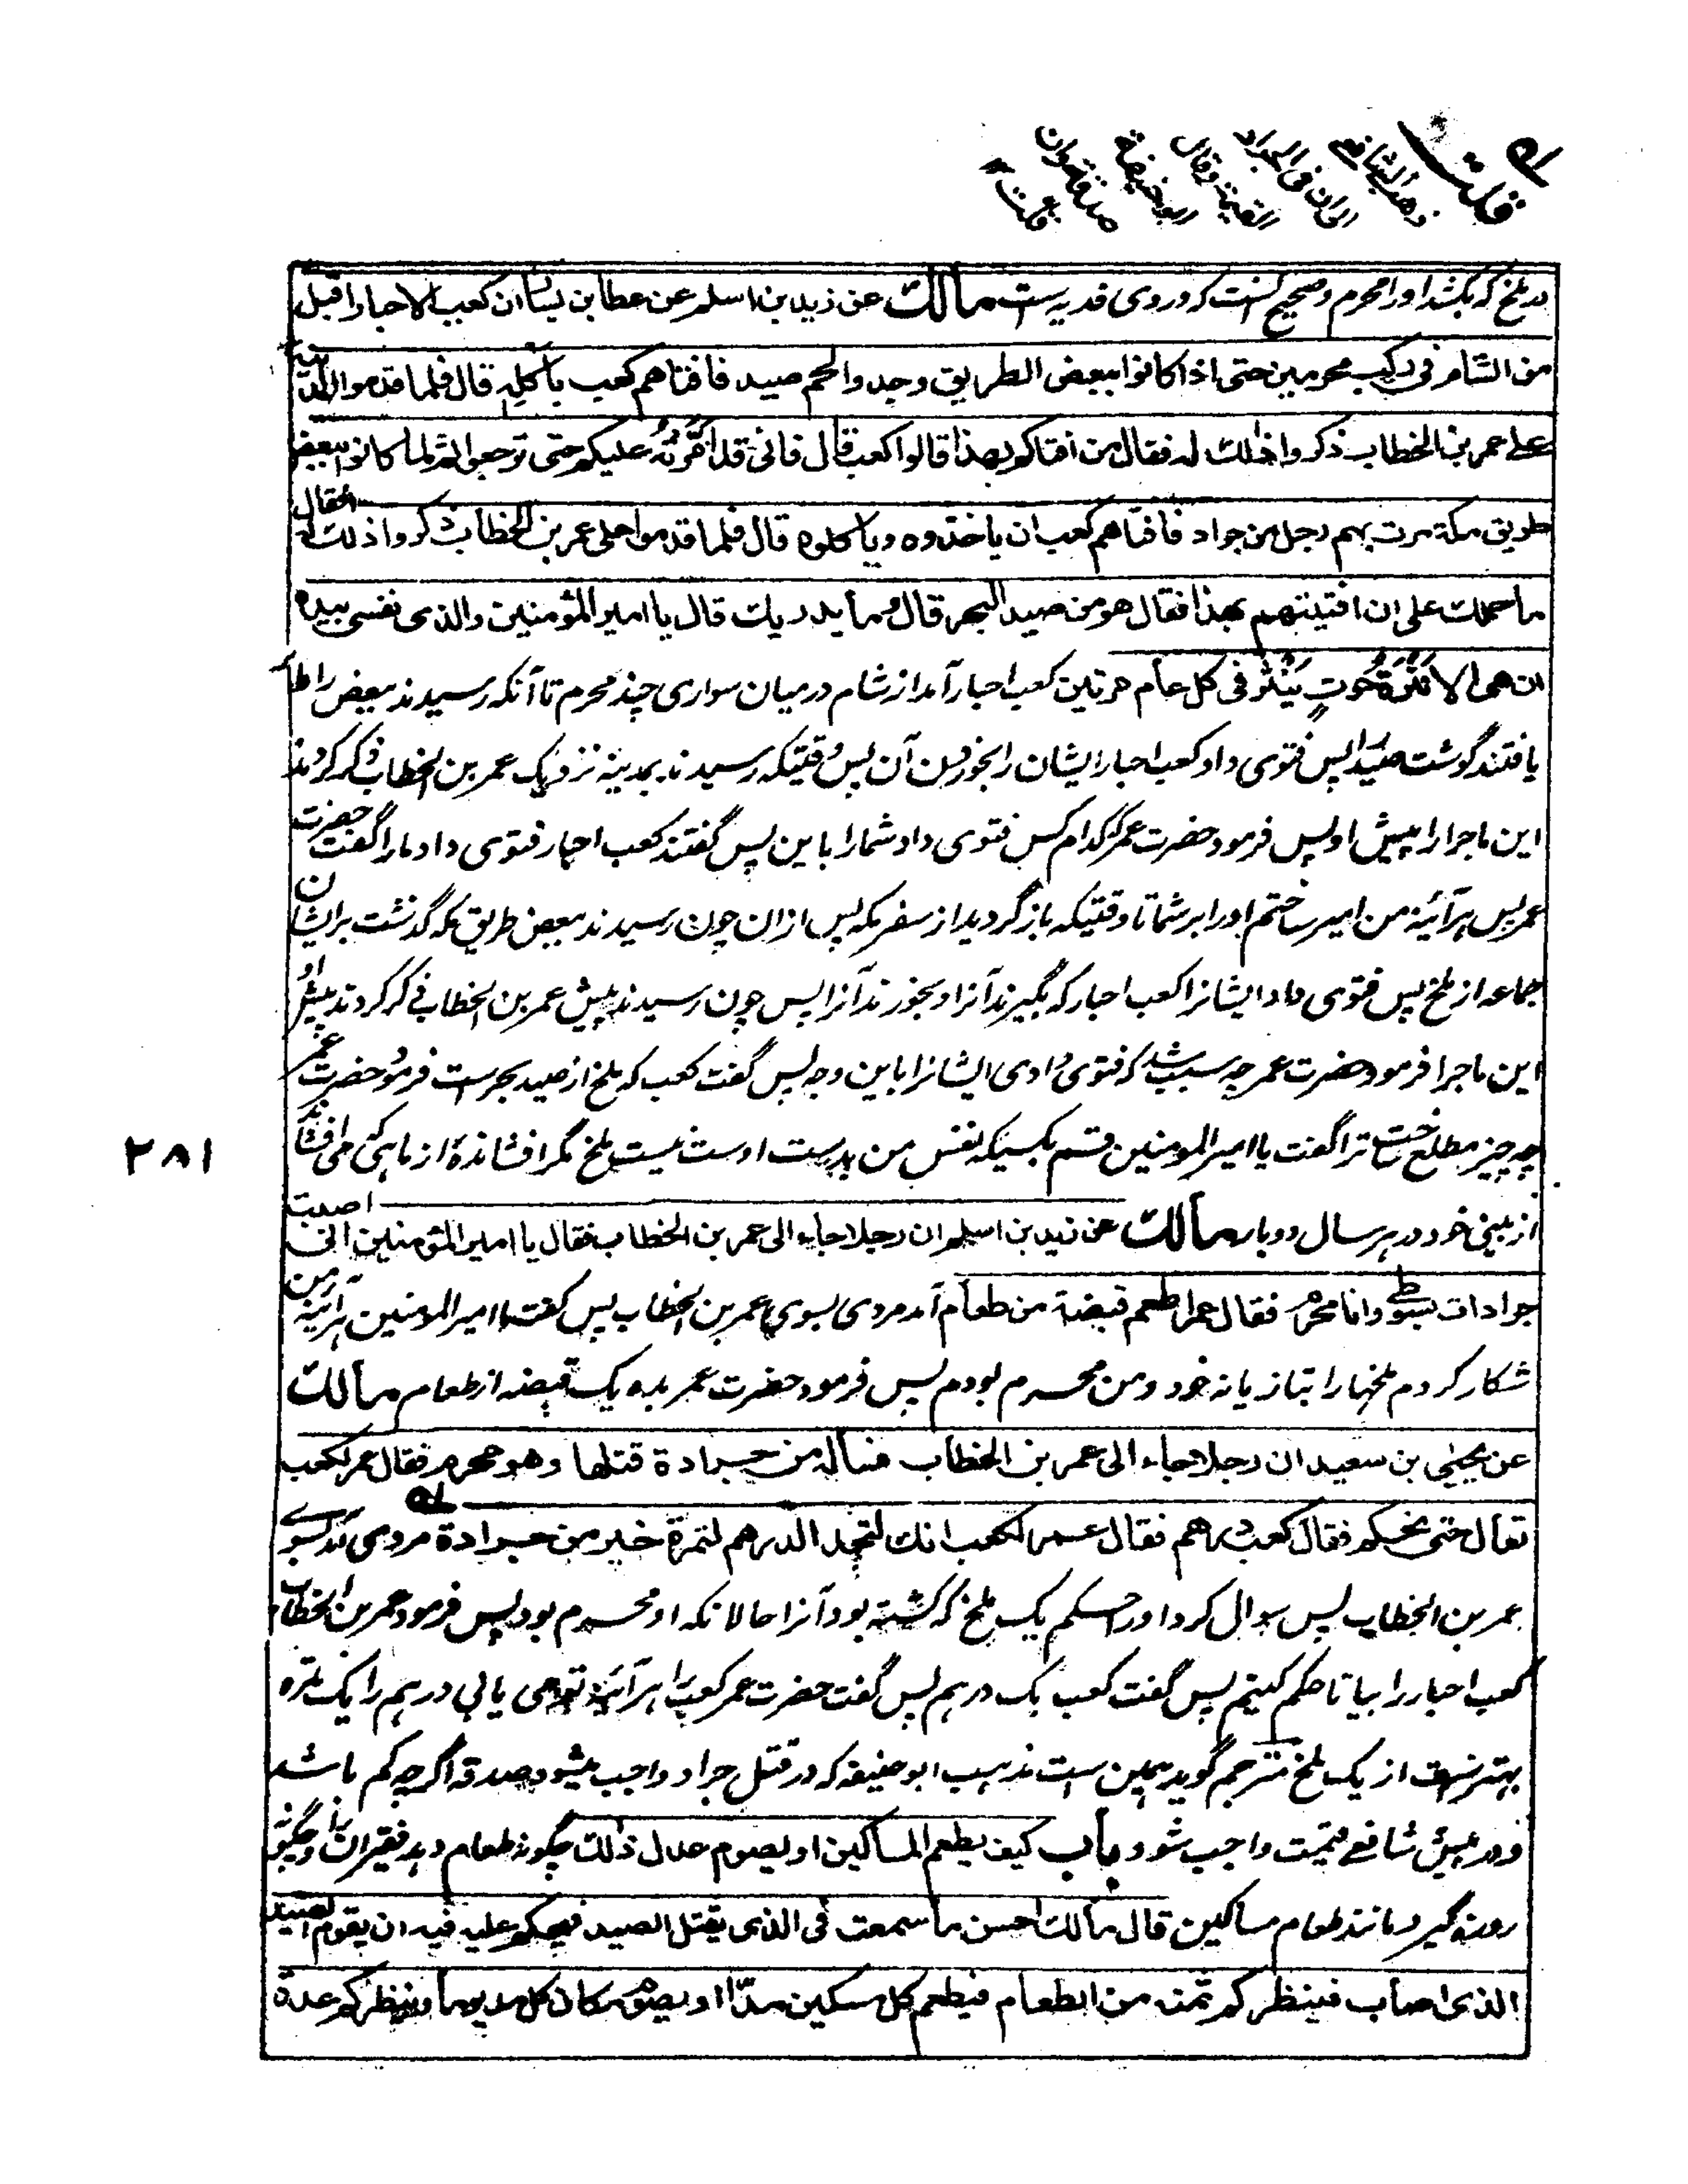 قلت
ذهب الشافعى
ان فى الجراد
القيمة وقال
ابو حنيفة
صدقة وان
قلت
در ملخ که بکشد او را محرم وصحیح آنست که در وی فدیه ست مالك عن زيد بن اسلم عن عطا بن يسار ان كعب الاحبار اقبل
من الشام فى ركب محرمين حتى اذا كانوا ببعض الطريق وجدوا لحم صيد فافتاهم كعب بأكله قال فلما قدموا المدينة
على عمر بن الخطاب ذكروا ذلك له فقال من افتاكم بهذا قالوا كعب قال فانى قد امّرته عليكم حتى ترجعوا ثم لما كانوا ببعض
طريق مكة مرت بهم رجل من جراد فافتاهم كعب ان ياخذوه وياكلوه قال فلما قدموا على عمر بن الخطاب ذكروا ذلك له فقال
ما حملك على ان افتيتهم بهذا فقال هو من صيد البحر قال وما يدريك قال يا امير المؤمنين والذى نفسى بيده
ان هى الا نثرة حوت ينثر فى كل عام مرتين کعب احبار آمد از شام در میان سواری چند محرم تا آنکه رسیدند بعض راه را
یافتند گوشت صید را پس فتوی داد کعب احبار ایشان را بخوردن آن پس وقتیکه رسیدند بمدینه نزدیک عمر بن الخطاب ذکر کردند
این ماجرا را پیش او پس فرمود حضرت عمر کدام کس فتوی داد شما را باین پس گفتند کعب احبار فتوی داد ما را گفت حضرت
عمر پس هرآئینه من امیر ساختم او را بر شما تا وقتیکه باز گردید از سفر مکه پس ازان چون رسیدند ببعض طریق مکه گذشت بر ایشان
جماعه از ملخ پس فتوی داد ایشانرا کعب احبار که بگیرند آنرا و بخورند آنرا پس چون رسیدند پیش عمر بن الخطاب ذکر کردند پیش او
این ماجرا فرمود حضرت عمر چه سبب شد که فتوی دادی ایشانرا باین وجه پس گفت کعب که ملخ از صید بحرست فرمود حضرت عمر
چه چیز مطلع ساخت ترا گفت یا امیر المومنین قسم بکسیکه نفس من بدست اوست نیست ملخ مگر افشاندۀ از ماهی که می افشاند
از بینی خود در هر سال دو بار مالك عن زيد بن اسلم ان رجلا جاء الى عمر بن الخطاب فقال يا امير المؤمنين انى اصبت
جرادات بسوطى وانا محرم فقال عمر اطعم قبضة من طعام آمد مردی بسوی عمر بن الخطاب پس گفت یا امیر المومنین هرآئینه من
شکار کردم ملخها را بتازیانه خود و من محرم بودم پس فرمود حضرت عمر بده یک قبضه از طعام مالك
عن يحيى بن سعيد ان رجلا جاء الى عمر بن الخطاب فساله من جرادة قتلها وهو محرم فقال عمر لكعب
تعال حتى نحكم فقال كعب درهم فقال عمر لكعب انك لتجد الدراهم لتمرة خير من جرادة مردی آمد بسوی
عمر بن الخطاب پس سوال کرد او را حکم یک ملخ که کشته بود آنرا حالانکه او محرم بود پس فرمود عمر بن الخطاب
کعب احبار را بیا تا حکم کنیم پس گفت کعب یک درهم پس گفت حضرت عمر کعب را هرآئینه تو می یابی درهم را یک تمره
بهترست از یک ملخ مترجم گوید همین ست مذهب ابو حنیفه که در قتل جراد واجب میشود صدقه اگرچه کم باشد
و در پیش شافعی قیمت واجب شود باب كيف يطعم المساكين او يصوم عدل ذلك چگونه طعام دهد فقیران را و چگونه
روزه گیرد مانند طعام مساکین قال مالك احسن ما سمعت فى الذى يقتل الصيد فيحكم عليه فيه ان يقوم الصيد
الذى اصاب فينظر كم ثمنه من الطعام فيطعم كل مسكين مدّا او يصوم مكان كل مد يوما وينظر كم عدة
۲۸۱